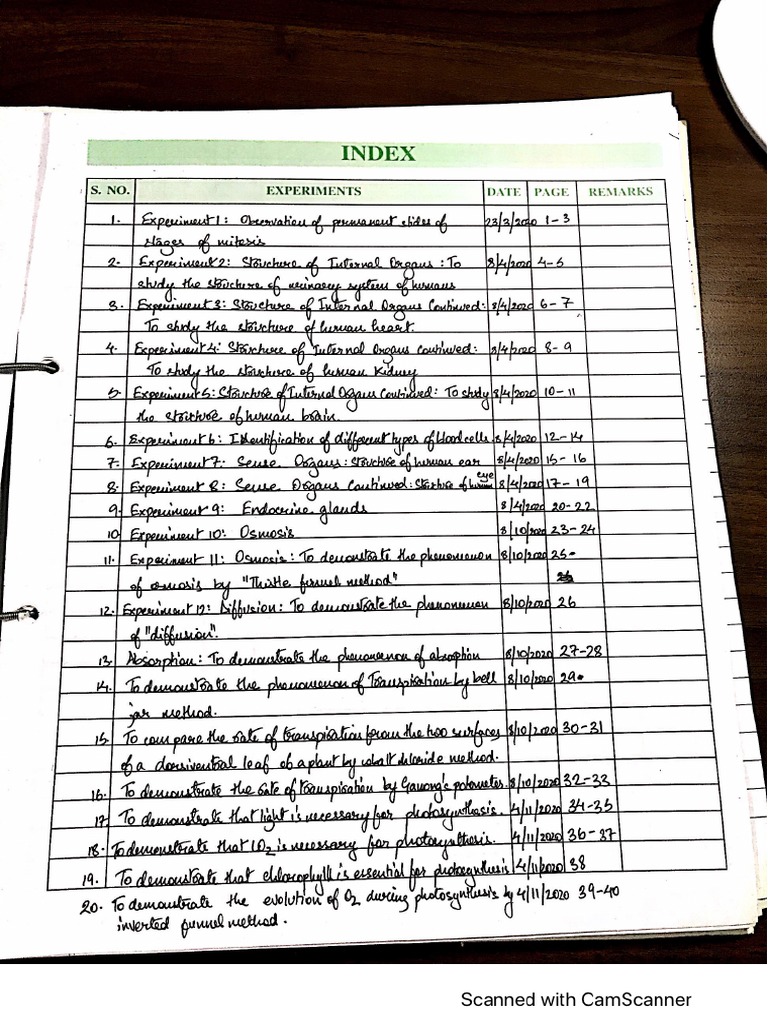 INDEX
S. NO. EXPERIMENTS DATE PAGE REMARKS
1. Experiment 1: Observation of permanent slides of 23/3/2020 1-3
stages of mitosis
2. Experiment 2: Structure of Internal Organs: To 8/4/2020 4-5
study the structure of urinary system of humans
3. Experiment 3: Structure of Internal Organs Continued: 8/4/2020 6-7
To study the structure of human heart.
4. Experiment 4: Structure of Internal Organs continued: 8/4/2020 8-9
To study the structure of human Kidney
5. Experiment 5: Structure of Internal Organs Continued: To study 8/4/2020 10-11
the structure of human brain.
6. Experiment 6: Identification of different types of blood cells 8/4/2020 12-14
7. Experiment 7: Sense Organs: structure of human ear 8/4/2020 15-16
8. Experiment 8: Sense Organs Continued: Structure of human eye 8/4/2020 17-19
9. Experiment 9: Endocrine glands 8/4/2020 20-22
10 Experiment 10: Osmosis 8/10/2020 23-24
11. Experiment 11: Osmosis: To demonstrate the phenomenon 8/10/2020 25
of osmosis by "Thistle funnel method"
12. Experiment 12: Diffusion: To demonstrate the phenomenon 8/10/2020 26
of "diffusion".
13. Absorption: To demonstrate the phenomenon of absorption 8/10/2020 27-28
14. To demonstrate the phenomenon of Transpiration by bell 8/10/2020 29
jar method.
15. To compare the rate of transpiration from the two surfaces 8/10/2020 30-31
of a dorsiventral leaf of a plant by cobalt chloride method.
16. To demonstrate the rate of transpiration by Ganong's potometer. 8/10/2020 32-33
17. To demonstrate that light is necessary for photosynthesis. 4/11/2020 34-35
18. To demonstrate that CO2 is necessary for photosynthesis. 4/11/2020 36-37
19. To demonstrate that chlorophyll is essential for photosynthesis 4/11/2020 38
20. To demonstrate the evolution of O2 during photosynthesis by 4/11/2020 39-40
inverted funnel method.
Scanned with CamScanner